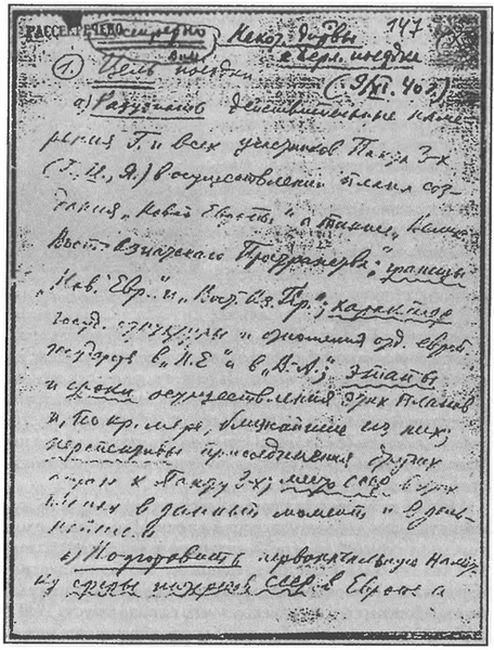 РАССЕКРЕЧЕНО
147
Некот. дирвы
к Берл. поездке
(9/XI. 40 г.)
1. Цель поездки
а) Разузнать действительные наме
рения Г. и всех участников Пакта 3-х
(Г., И., Я.) в осуществлении плана соз-
дания „Новой Европы", а также „Велик.
Вост.-Азиатского Пространства"; границы
„Нов. Евр." и „Вост.-Аз. Пр."; характер
госуд. структуры и отношения отд. европ.
государств в „Н.Е." и в „В.-А."; этапы
и сроки осуществления этих планов
и, по кр. мере, ближайшие из них;
перспективы присоединения других
стран к Пакту 3-х; место СССР в этих
планах в данный момент и в даль-
нейшем.
б) Подготовить первоначальную намет-
ку сферы интересов СССР в Европе и